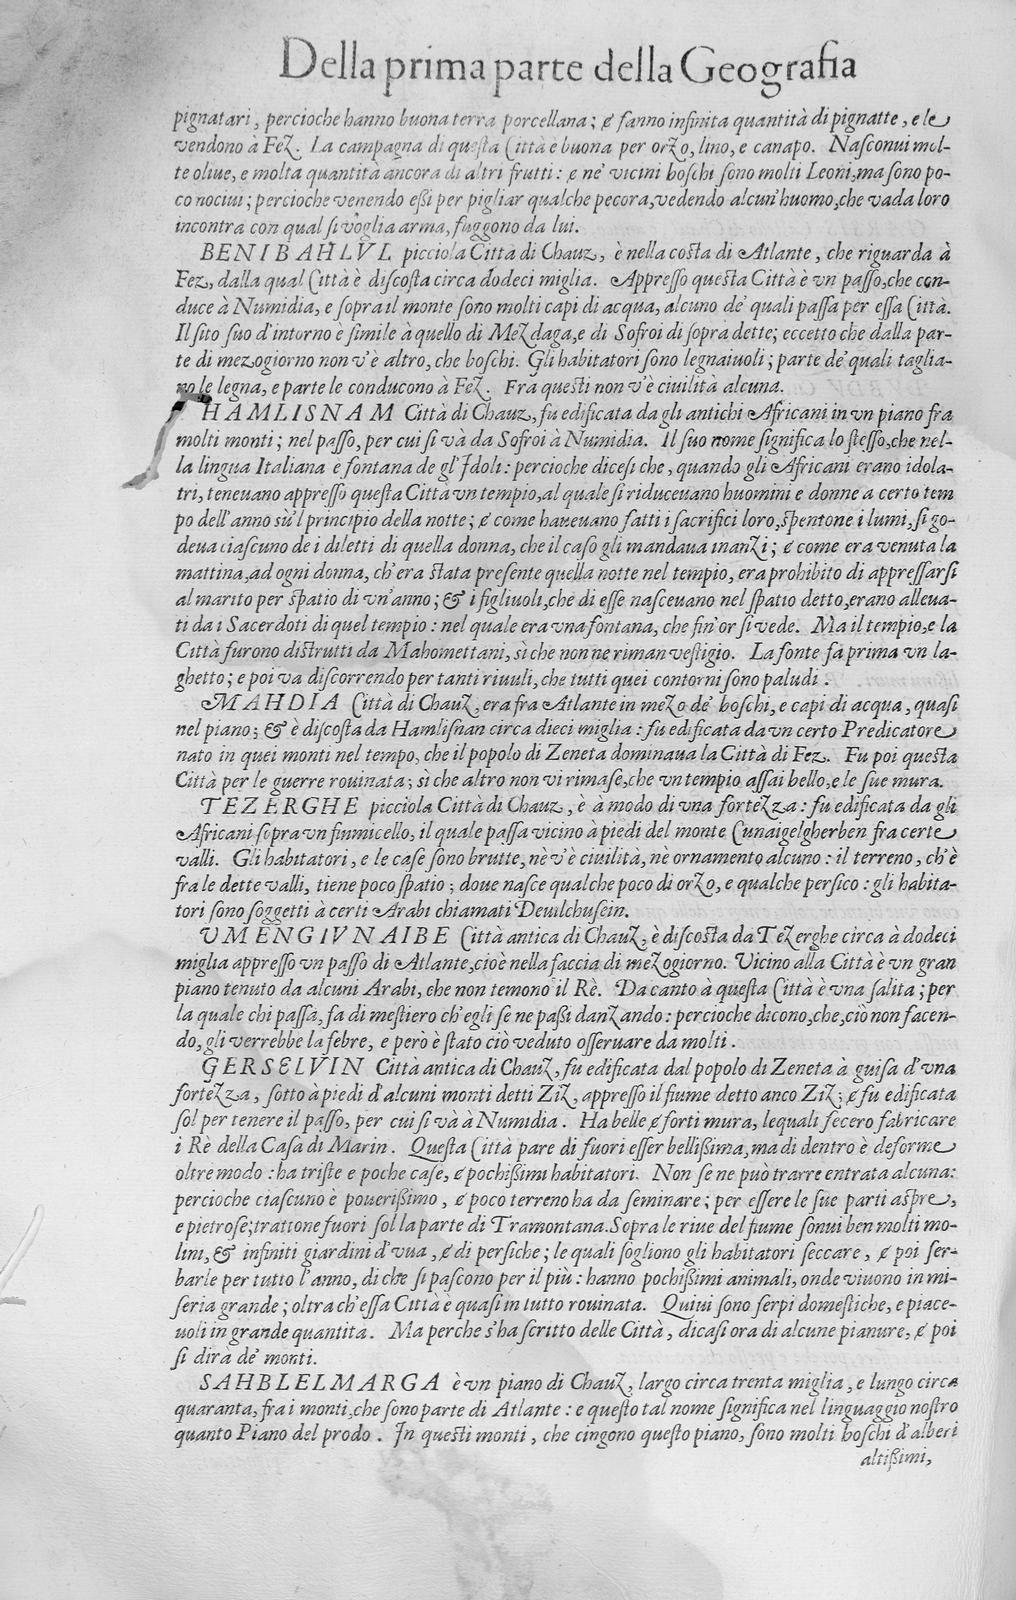 Della prima parte della Geografia
pignatari, percioche hanno buona terra porcellana; & fanno infinita quantità di pignatte, e le
vendono à Fez. La campagna di questa Città è buona per orzo, lino, e canapo. Nasconui mol-
te oliue, e molta quantità ancora di altri frutti: & ne' vicini boschi sono molti Leoni, ma sono po-
co nociui; percioche venendo essi per pigliar qualche pecora, vedendo alcun' huomo, che vada loro
incontra con qual si voglia arma, fuggono da lui.
BENIBAHLVL picciola Città di Chauz, è nella costa di Atlante, che riguarda à
Fez, dalla qual Città è discosta circa dodeci miglia. Appresso questa Città è vn passo, che con-
duce à Numidia, e sopra il monte sono molti capi di acqua, alcuno de' quali passa per essa Città.
Il sito suo d'intorno è simile à quello di Mezdaga, e di Sofroi di sopra dette; eccetto che dalla par-
te di mezogiorno non v'è altro, che boschi. Gli habitatori sono legnaiuoli; parte de' quali taglia-
no le legna, e parte le conducono à Fez. Fra questi non v'è ciuilità alcuna.
HAMLISNAM Città di Chauz, fu edificata da gli antichi Africani in vn piano fra
molti monti; nel passo, per cui si và da Sofroi à Numidia. Il suo nome significa lo stesso, che nel-
la lingua Italiana è fontana de gl'Idoli: percioche dicesi che, quando gli Africani erano idola-
tri, teneuano appresso questa Città vn tempio, al quale si riduceuano huomini e donne a certo tem
po dell'anno sù'l principio della notte; & come haueuano fatti i sacrifici loro, spentone i lumi, si go-
deua ciascuno de i diletti di quella donna, che il caso gli mandaua inanzi; & come era venuta la
mattina, ad ogni donna, ch'era stata presente quella notte nel tempio, era prohibito di appressarsi
al marito per spatio di vn'anno; & i figliuoli, che di esse nasceuano nel spatio detto, erano alleua-
ti da i Sacerdoti di quel tempio: nel quale era vna fontana, che fin'or si vede. Ma il tempio, e la
Città furono distrutti da Mahomettani, sì che non ne riman vestigio. La fonte fà prima vn la-
ghetto; e poi va discorrendo per tanti riuuli, che tutti quei contorni sono paludi.
MAHDIA Città di Chauz, era fra Atlante in mezo de' boschi, e capi di acqua, quasi
nel piano; & è discosta da Hamlisnan circa dieci miglia: fu edificata da vn certo Predicatore
nato in quei monti nel tempo, che il popolo di Zeneta dominaua la Città di Fez. Fu poi questa
Città per le guerre rouinata; sì che altro non vi rimase, che vn tempio assai bello, e le sue mura.
TEZERGHE picciola Città di Chauz, è à modo di vna fortezza: fu edificata da gli
Africani sopra vn fiumicello, il quale passa vicino à piedi del monte Cunaigelgherben fra certe
valli. Gli habitatori, e le case sono brutte, nè v'è ciuilità, nè ornamento alcuno: il terreno, ch'è
fra le dette valli, tiene poco spatio; doue nasce qualche poco di orzo, e qualche persico: gli habita-
tori sono soggetti à certi Arabi chiamati Deuilchusein.
VMENGIVNAIBE Città antica di Chauz, è discosta da Tezerghe circa à dodeci
miglia appresso vn passo di Atlante, cioè nella faccia di mezogiorno. Vicino alla Città è vn gran
piano tenuto da alcuni Arabi, che non temono il Rè. Da canto à questa Città è vna salita; per
la quale chi passa, fa di mestiero ch'egli se ne passi danzando: percioche dicono, che, ciò non facen-
do, gli verrebbe la febre, e però è stato ciò veduto osseruare da molti.
GERSELVIN Città antica di Chauz, fu edificata dal popolo di Zeneta à guisa d'vna
fortezza, sotto à piedi d'alcuni monti detti Ziz, appresso il fiume detto anco Ziz; & fu edificata
sol per tenere il passo, per cui si và à Numidia. Ha belle & forti mura, lequali fecero fabricare
i Rè della Casa di Marin. Questa Città pare di fuori esser bellissima, ma di dentro è deforme
oltre modo: ha triste e poche case, & pochissimi habitatori. Non se ne può trarre entrata alcuna:
percioche ciascuno è pouerissimo, & poco terreno ha da seminare; per essere le sue parti aspre,
e pietrose; trattone fuori sol la parte di Tramontana. Sopra le riue del fiume sonui ben molti mo-
lini, & infiniti giardini d'vua, & di persiche; le quali sogliono gli habitatori seccare, & poi ser-
barle per tutto l'anno, di che si pascono per il più: hanno pochissimi animali, onde viuono in mi-
seria grande; oltra ch'essa Città è quasi in tutto rouinata. Quiui sono serpi domestiche, e piace-
uoli in grande quantità. Ma perche s'ha scritto delle Città, dicasi ora di alcune pianure, & poi
si dirà de' monti.
SAHBLELMARGA è vn piano di Chauz, largo circa trenta miglia, e lungo circa
quaranta, fra i monti, che sono parte di Atlante: e questo tal nome significa nel linguaggio nostro
quanto Piano del prodo. In questi monti, che cingono questo piano, sono molti boschi d'alberi
altissimi,